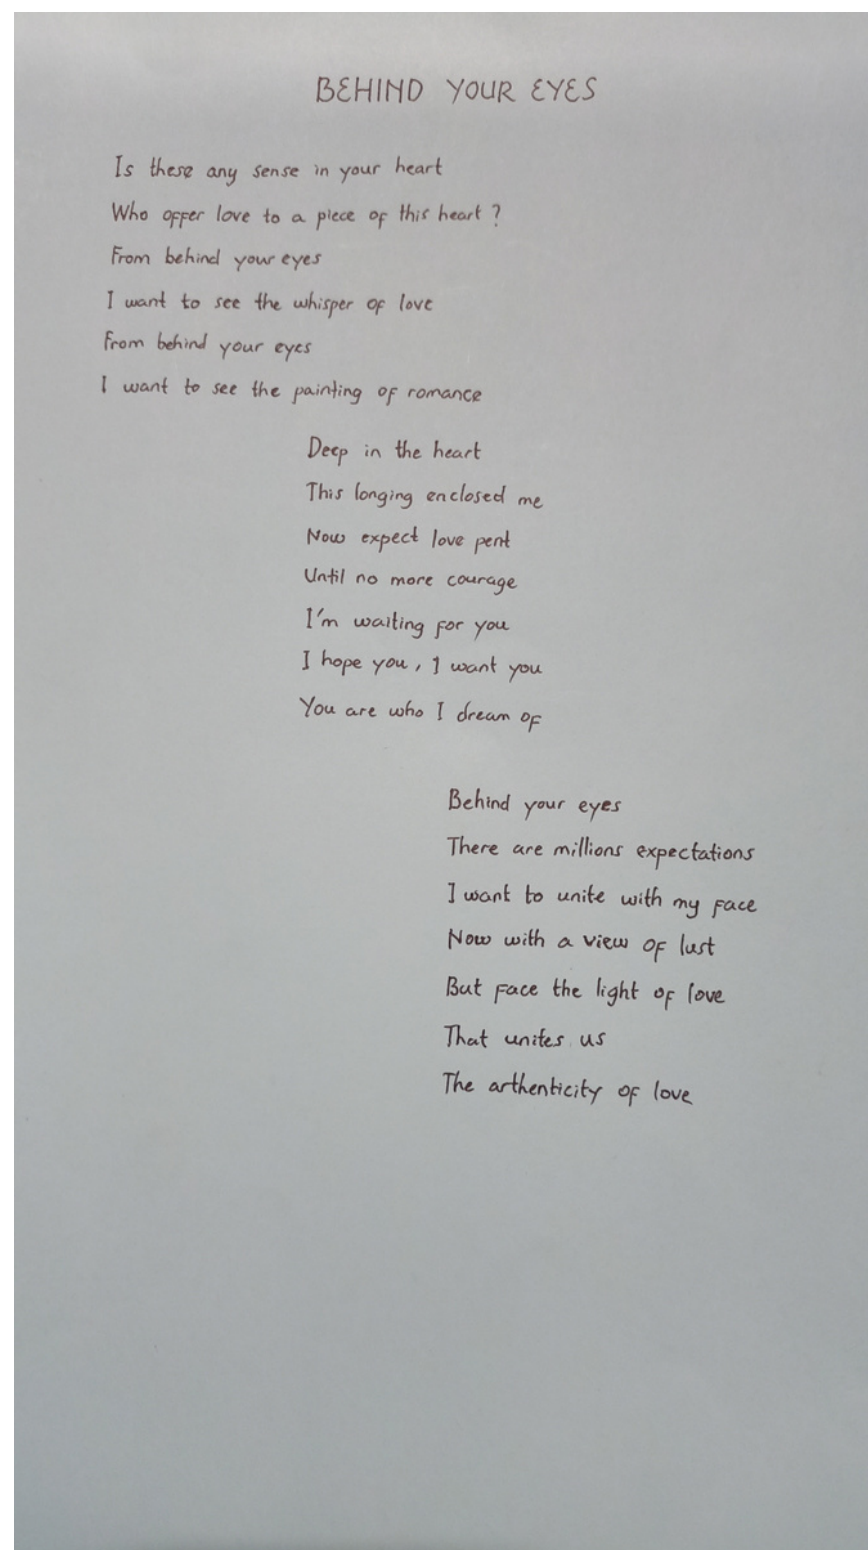 BEHIND YOUR EYES
Is these any sense in your heart
Who offer love to a piece of this heart ?
From behind your eyes
I want to see the whisper of love
From behind your eyes
I want to see the painting of romance
Deep in the heart
This longing enclosed me
Now expect love pent
Until no more courage
I'm waiting for you
I hope you, I want you
You are who I dream of
Behind your eyes
There are millions expectations
I want to unite with my face
Now with a view of lust
But face the light of love
That unites us
The arthenticity of love